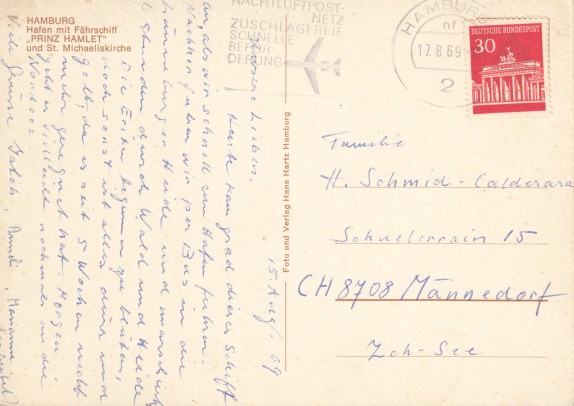 HAMBURG
Hafen mit Fährschiff
"PRINZ HAMLET"
und St. Michaeliskirche
NACHTLUFTPOST-
NETZ
ZUSCHLAGFREIE
SCHNELLE
BEFÖR-
DERUNG
HAMBURG
nf
17.8.69
2
DEUTSCHE BUNDESPOST
30
Foto und Verlag Hans Hartz Hamburg
15. Aug. 69
Lieben,
Heute kam grad dieses Schiff
an, als wir schnell zum Hafen fuhren.
Nachher fuhren wir per Bus in die
Lüneburger Heide und marschierten
Stunden durch Wald und Heide
Die Eriken beginnen zu blühen,
noch sonst ist alles dürr und
gelb, da es seit 5 Wochen nicht
mehr geregnet hat. Morgen
geht es vielleicht nochmals an die
Nordsee.
Viele Grüsse
Familie
H. Schmid-Calderara
Schuelerrain 51
CH 8708 Männedorf
Zch-See